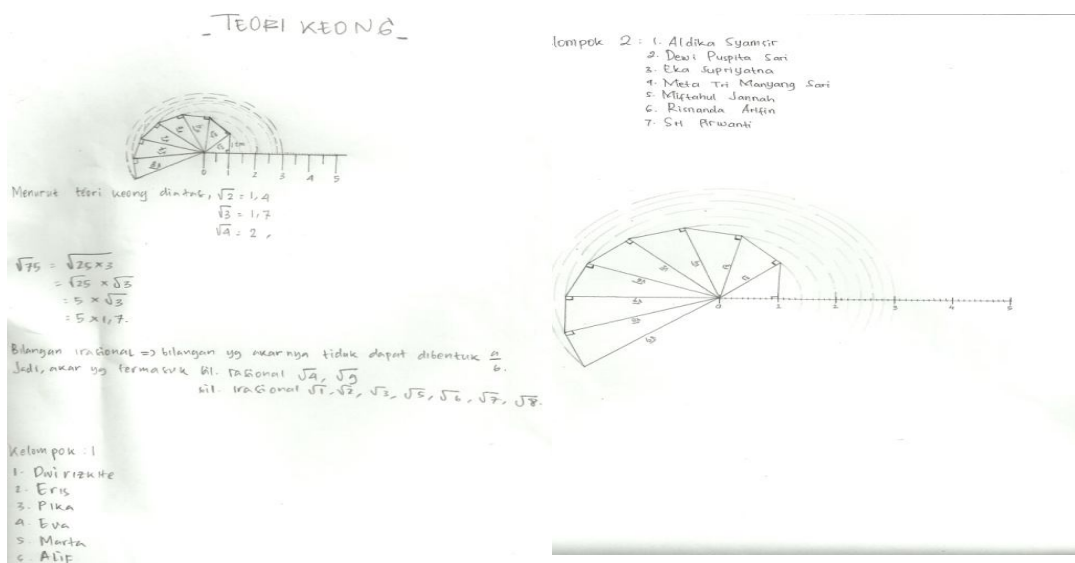 _ TEORI KEONG _
0 1 2 3 4 5
Menurut teori keong diatas, √2 = 1,4
√3 = 1,7
√4 = 2,
√75 = √25 × 3
= √25 × √3
= 5 × √3
= 5 × 1,7.
Bilangan irasional => bilangan yg akarnya tidak dapat dibentuk a/b.
Jadi, akar yg termasuk bil. rasional √4, √9
bil. irasional √1, √2, √3, √5, √6, √7, √8.
Kelompok : 1
1. Dwi
2. Eris
3. Pika
4. Eva
5. Marta
6. Alif
lompok 2 : 1. Aldika Syamsir
2. Dewi Puspita Sari
3. Eka Supriyatna
4. Meta Tri Manyang Sari
5. Miftahul Jannah
6. Risnanda Arifin
7. Sri Pirwanti
0 1 2 3 4 5